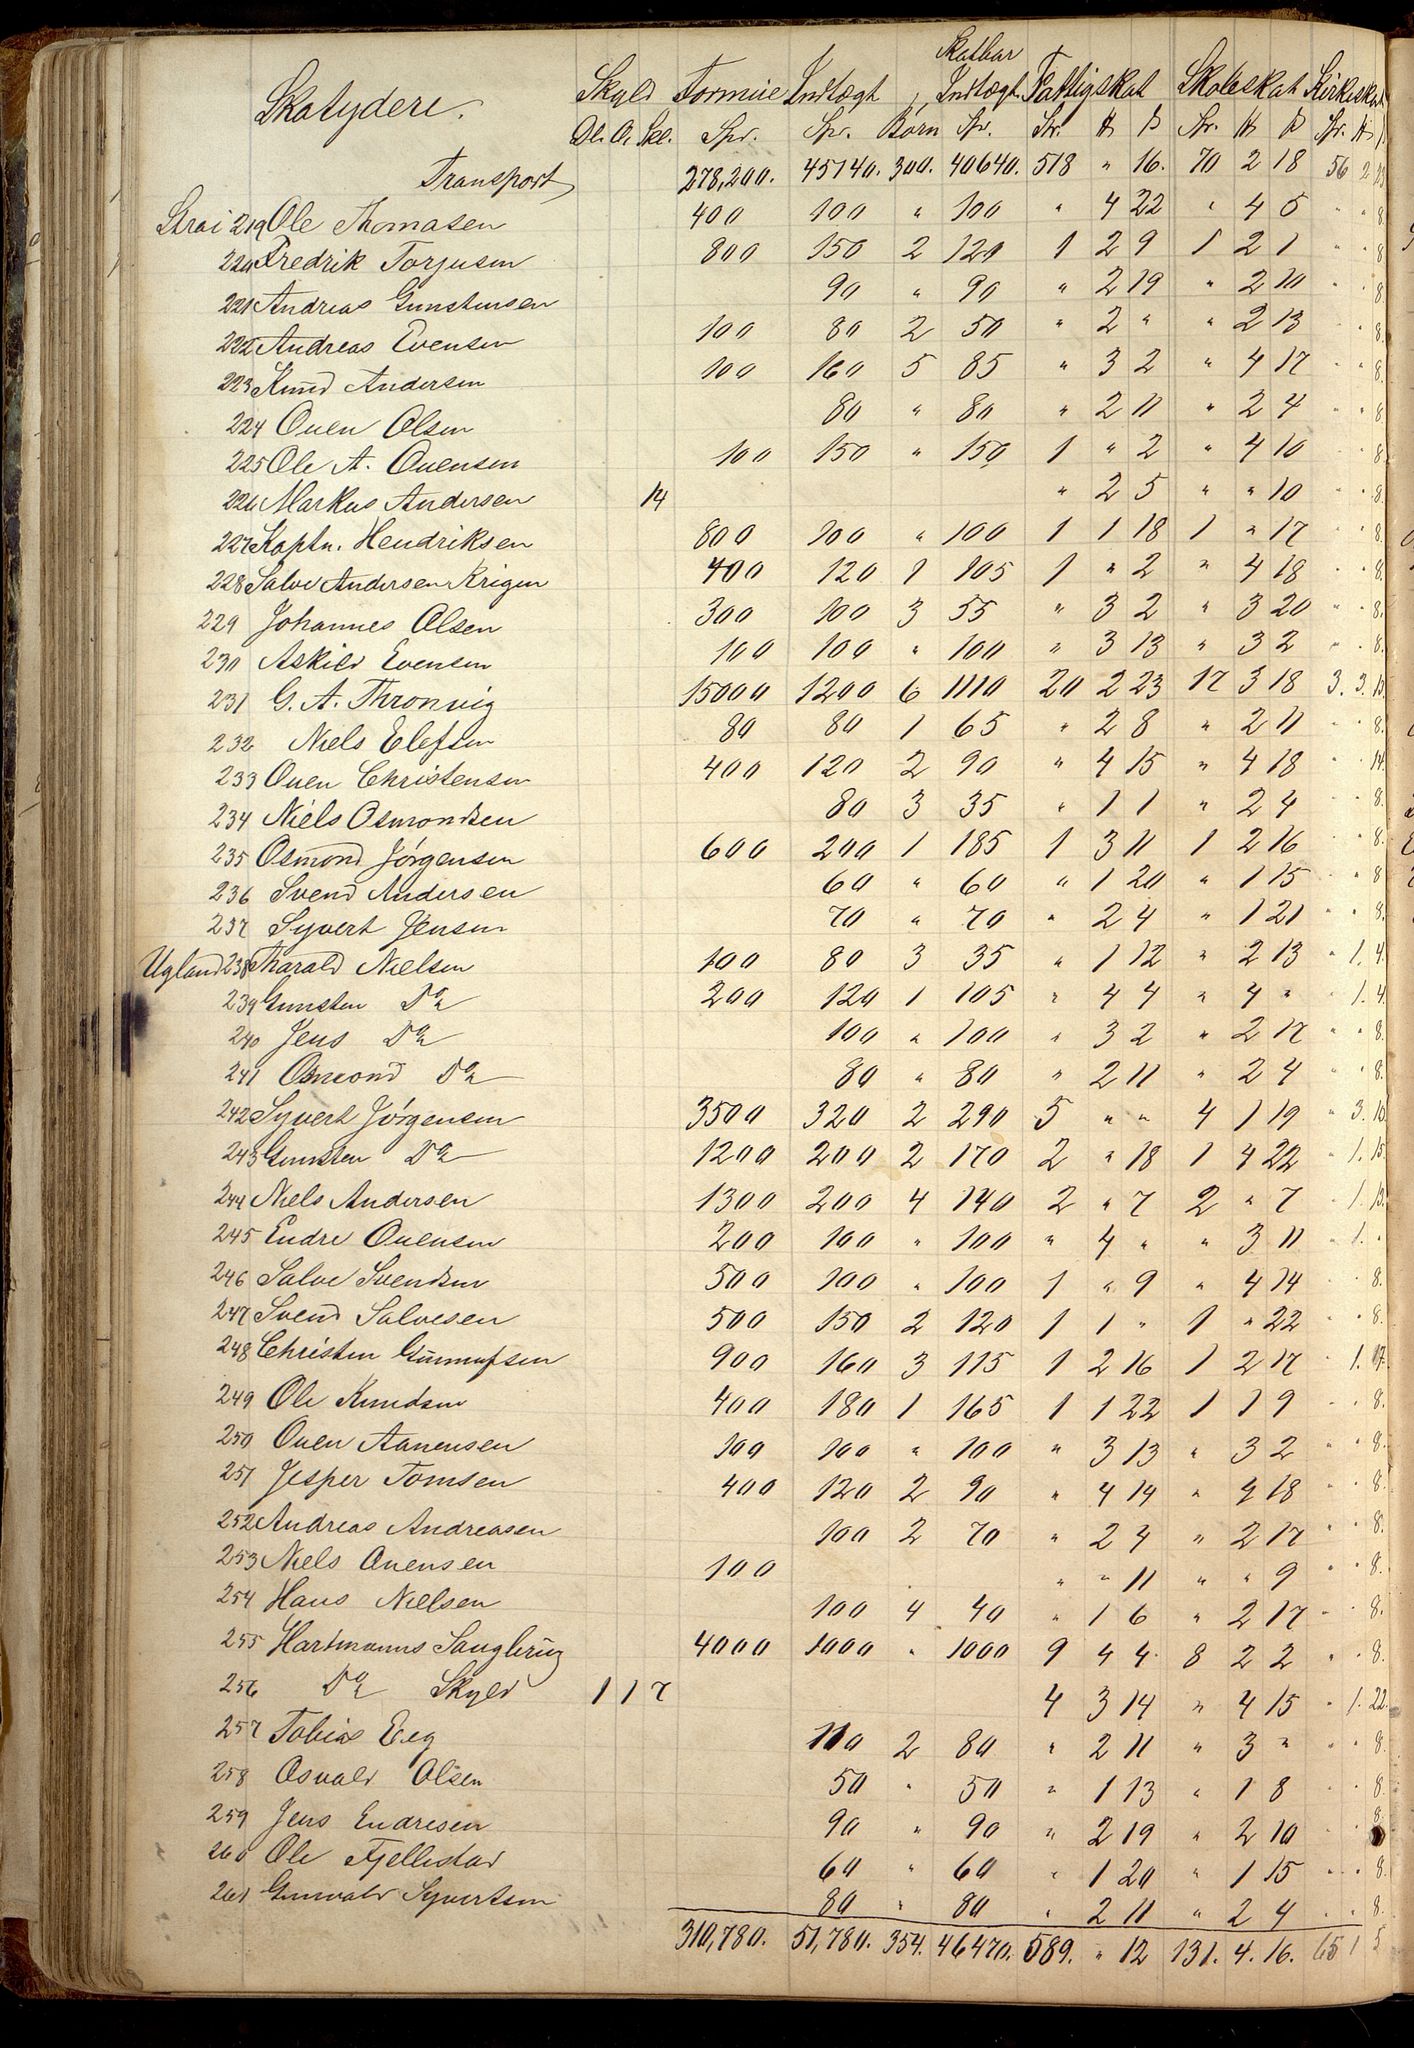 Skatydere. Skyld Formue Indtægt Skatbar Indtægt Fattigskat Skoleskat Kirkeskat
Dl. O. Skl. Spr. Spr. Børn Spr. Spr. # ß Spr. # ß Spr. #
Transport 278,200. 45740. 300. 40640. 518 " 16. 70 2 18 56 2 23
Strai 219 Ole Thomasen 400 100 " 100 " 4 22 " 4 5 " " 8
220 Fredrik Torjusen 800 150 2 120 1 2 9 1 2 1 " " 8
221 Andreas Gunstensen 90 " 90 " 2 19 " 2 10 " " 8
222 Andreas Evensen 100 80 2 50 " 2 " " 2 13 " " 8.
223 Knud Andersen 100 160 5 85 " 3 2 " 4 17 " " 8.
224 Ouen Olsen 80 " 80 " 2 11 " 2 4 " " 8
225 Ole A. Ouensen 100 150 " 150 1 " 2 " 4 10 " " 8.
226 Markus Andersen 14 " 2 5 " " 10 " " 8.
227 Kaptn. Hendriksen 800 100 " 100 1 1 18 1 " 17 " " 8.
228 Salve Andersen Krigen 400 120 1 105 1 " 2 " 4 18 " " 8.
229 Johannes Olsen 300 100 3 55 " 3 2 " 3 20 " " 8.
230 Askild Evensen 100 100 " 100 " 3 13 " 3 2 " " 8.
231 G. A. Thronvig 15000 1200 6 1110 20 2 23 17 3 18 3. 3. 13
232 Niels Elefsen 80 80 1 65 " 2 8 " 2 11 " " 8.
233 Ouen Christensen 400 120 2 90 " 4 15 " 4 18 " " 14.
234 Niels Osmondsen 80 3 35 " 1 1 " 2 4 " " 8.
235 Osmond Jørgensen 600 200 1 185 1 3 11 1 2 16 " " 8.
236 Svend Andersen 60 " 60 " 1 20 " 1 15 " " 8
237 Syvert Jensen 70 " 70 " 2 4 " 1 21 " " 8.
Ugland 238 Tharald Nielsen 100 80 3 35 " 1 12 " 2 13 " 1. 4.
239 Gunsten Do 200 120 1 105 " 4 4 " 4 " " 1. 4.
240 Jens Do 100 " 100 " 3 2 " 2 17 " " 8.
241 Osmond Do 80 " 80 " 2 11 " 2 4 " " 8.
242 Syvert Jørgensen 3500 320 2 290 5 " " 4 1 19 " 3. 10
243 Gunsten Do 1200 200 2 170 2 " 18 1 4 22 " 1. 15.
244 Niels Andersen 1300 200 4 140 2 " 7 2 " 7 " 1. 13.
245 Endre Ouensen 200 100 " 100 " 4 " " 3 11 " 1. "
246 Salve Svendsen 500 100 " 100 1 " 9 " 4 14 " " 8.
247 Svend Salvesen 500 150 2 120 1 1 " 1 " 22 " " 8.
248 Christen Gunnufsen 900 160 3 115 1 2 16 1 2 17 " 1. 17.
249 Ole Knudsen 400 180 1 165 1 1 22 1 1 9 " " 8.
250 Ouen Aanensen 100 100 " 100 " 3 13 " 3 2 " " 8.
251 Jesper Tomsen 400 120 2 90 " 4 14 " 4 18 " " 8.
252 Andreas Andreasen 100 2 70 " 2 4 " 2 17 " " 8.
253 Niels Ouensen 100 " " 11 " " 9 " " 8.
254 Hans Nielsen 100 4 40 " 1 6 " 2 17 " " 8.
255 Hartmanns Saugbrug 4000 1000 " 1000 9 4 4. 8 2 2 " " 8.
256 Do Skyld 1 1 7 4 3 14 " 4 15 " 1. 22.
257 Tobias Eeg 110 2 80 " 2 11 " 3 " " " 8.
258 Osvald Olsen 50 " 50 " 1 13 " 1 8 " " 8.
259 Jens Endresen 90 " 90 " 2 19 " 2 10 " " 8.
260 Ole Fjellestad 60 " 60 " 1 20 " 1 15 " " 8.
261 Gunvald Syvertsen 80 " 80 " 2 11 " 2 4 " " 8.
310,780. 51,780. 354. 46470. 589. " 12 131. 4. 16. 65 1 5